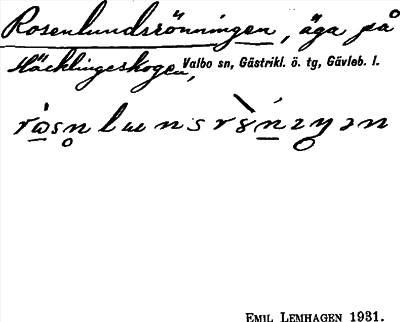 Rosenlundsrönningen, äga på
Häcklingeskogen, Valbo sn, Gästrikl. ö. tg, Gävleb. l.
EMIL LEMHAGEN 1931.